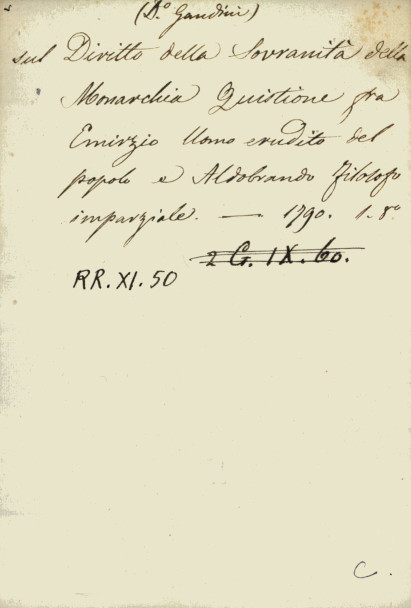 (D.º Gandini)
sul Diritto della Sovranità della
Monarchia Quistione fra
Emirzio Uomo erudito del
popolo e Aldobrando Filosofo
imparziale. — 1790. 1. 8º
2 G. IX. 60.
RR. XI. 50
C.